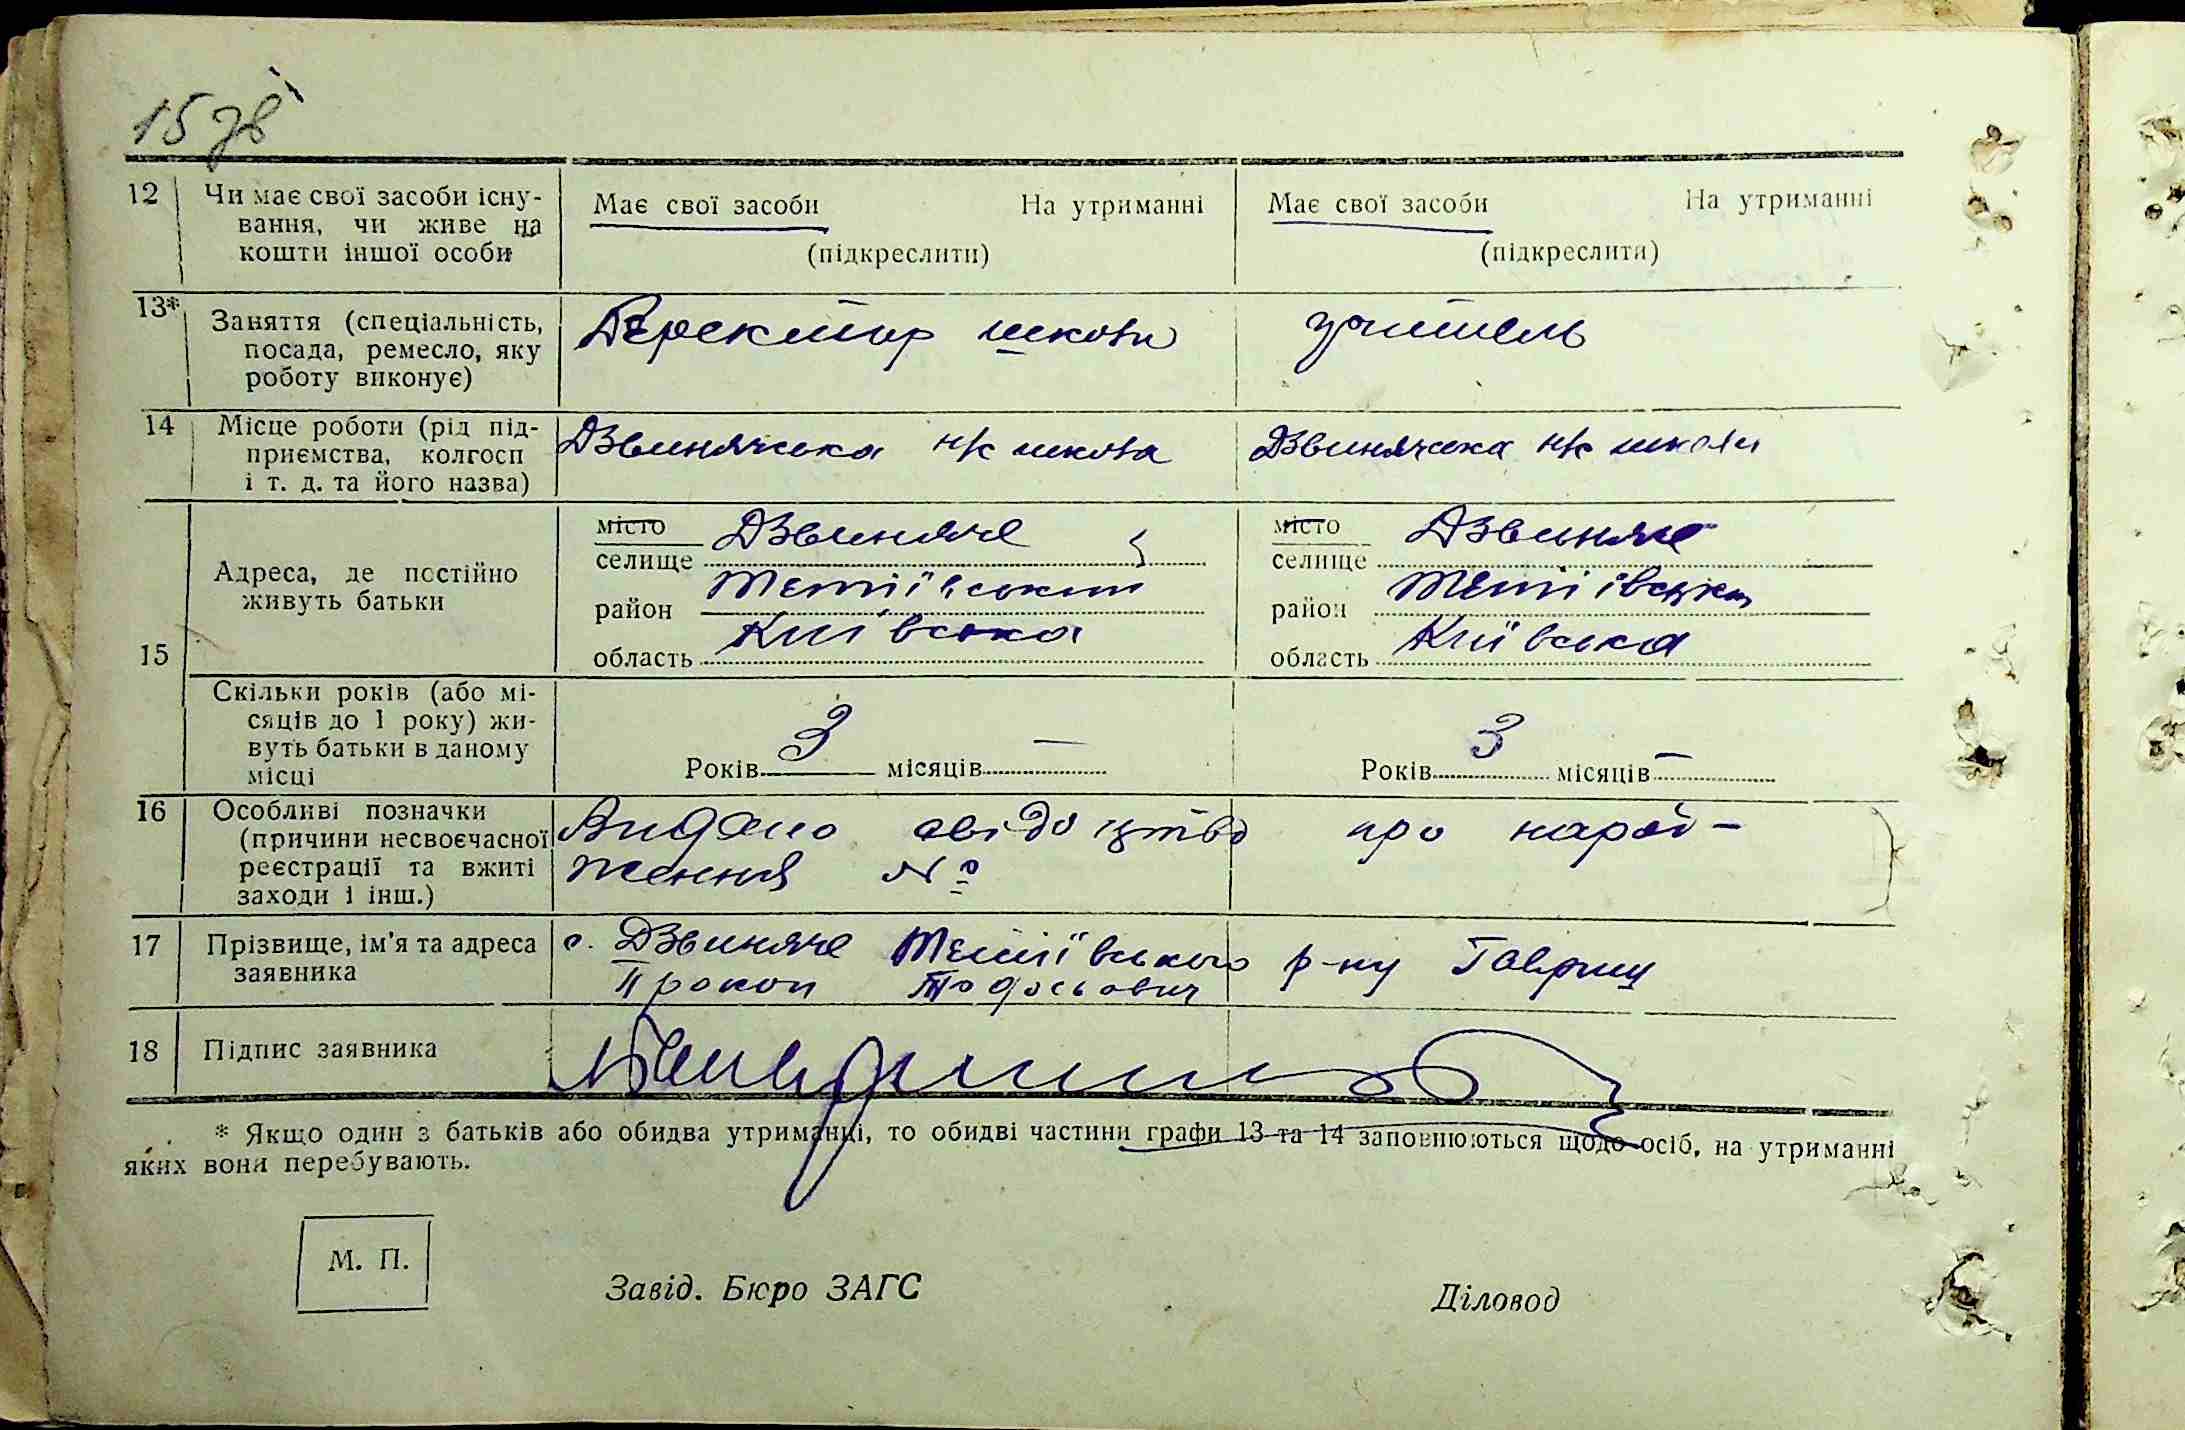 15 зв
12 Чи має свої засоби існу-
вання, чи живе на
кошти іншої особи
Має свої засоби На утриманні
(підкреслити)
Має свої засоби На утриманні
(підкреслити)
13* Заняття (спеціальність,
посада, ремесло, яку
роботу виконує)
Деректор школи
учитель
14 Місце роботи (рід під-
приємства, колгосп
і т. д. та його назва)
Дзвинячська н/с школа
Дзвинячська н/с школи
15 Адреса, де постійно
живуть батьки
місто
селище Дзвиняче
район Тетіївський
область Київська
місто
селище Дзвиняче
район Тетіївський
область Київська
Скільки років (або мі-
сяців до 1 року) жи-
вуть батьки в даному
місці
Років 3 місяців —
Років 3 місяців —
16 Особливі позначки
(причини несвоєчасної
реєстрації та вжиті
заходи і інш.)
Видано свідоцтво про народ-
ження №
17 Прізвище, ім'я та адреса
заявника
с. Дзвиняче Тетіївського р-ну Гаврищ
Прокоп Тодосьович
18 Підпис заявника
* Якщо один з батьків або обидва утриманці, то обидві частини графи 13 та 14 заповнюються щодо осіб, на утриманні
яких вони перебувають.
М. П.
Завід. Бюро ЗАГС
Діловод